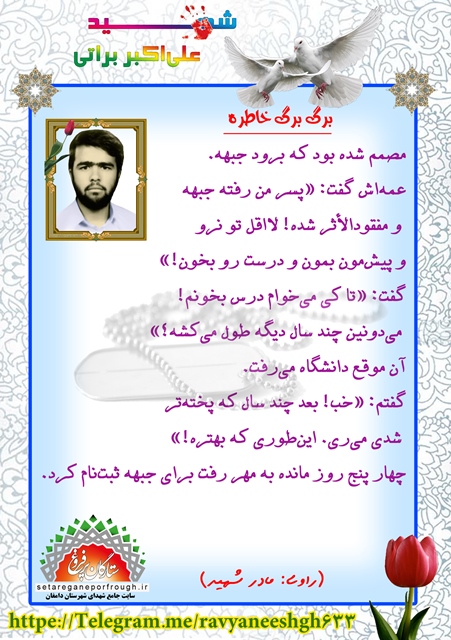 شهید
علی‌اکبر براتی
برگ برگ خاطره
مصمم شده بود که برود جبهه.
عمه‌اش گفت: «پسر من رفته جبهه
و مفقودالأثر شده! لااقل تو نرو
و پیش‌مون بمون و درست رو بخون!»
گفت: «تا کی می‌خوام درس بخونم!
می‌دونین چند سال دیگه طول می‌کشه؟»
آن موقع دانشگاه می‌رفت.
گفتم: «خب! بعد چند سال که پخته‌تر
شدی می‌ری. این‌طوری که بهتره!»
چهار پنج روز مانده به مهر رفت برای جبهه ثبت‌نام کرد.
(راوی: مادر شهید)
ستارگان پرفروغ
setareganeporfrough.ir
سایت جامع شهدای شهرستان دامغان
https://Telegram.me/ravyaneeshgh۶۳۳